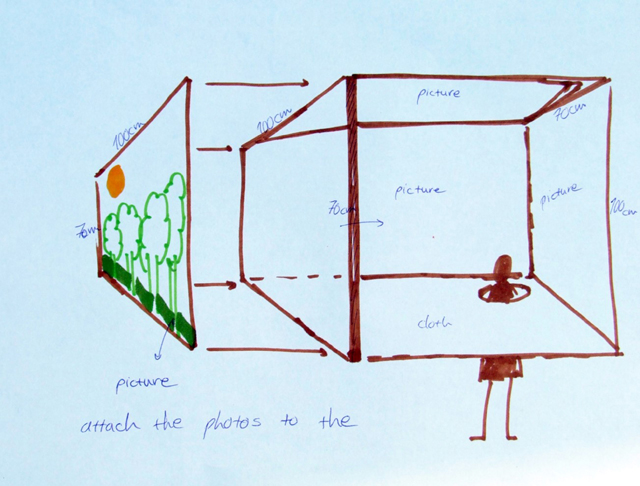 picture
100cm
100cm
70cm
picture
picture
70cm
70cm
100cm
cloth
picture
attach the photos to the